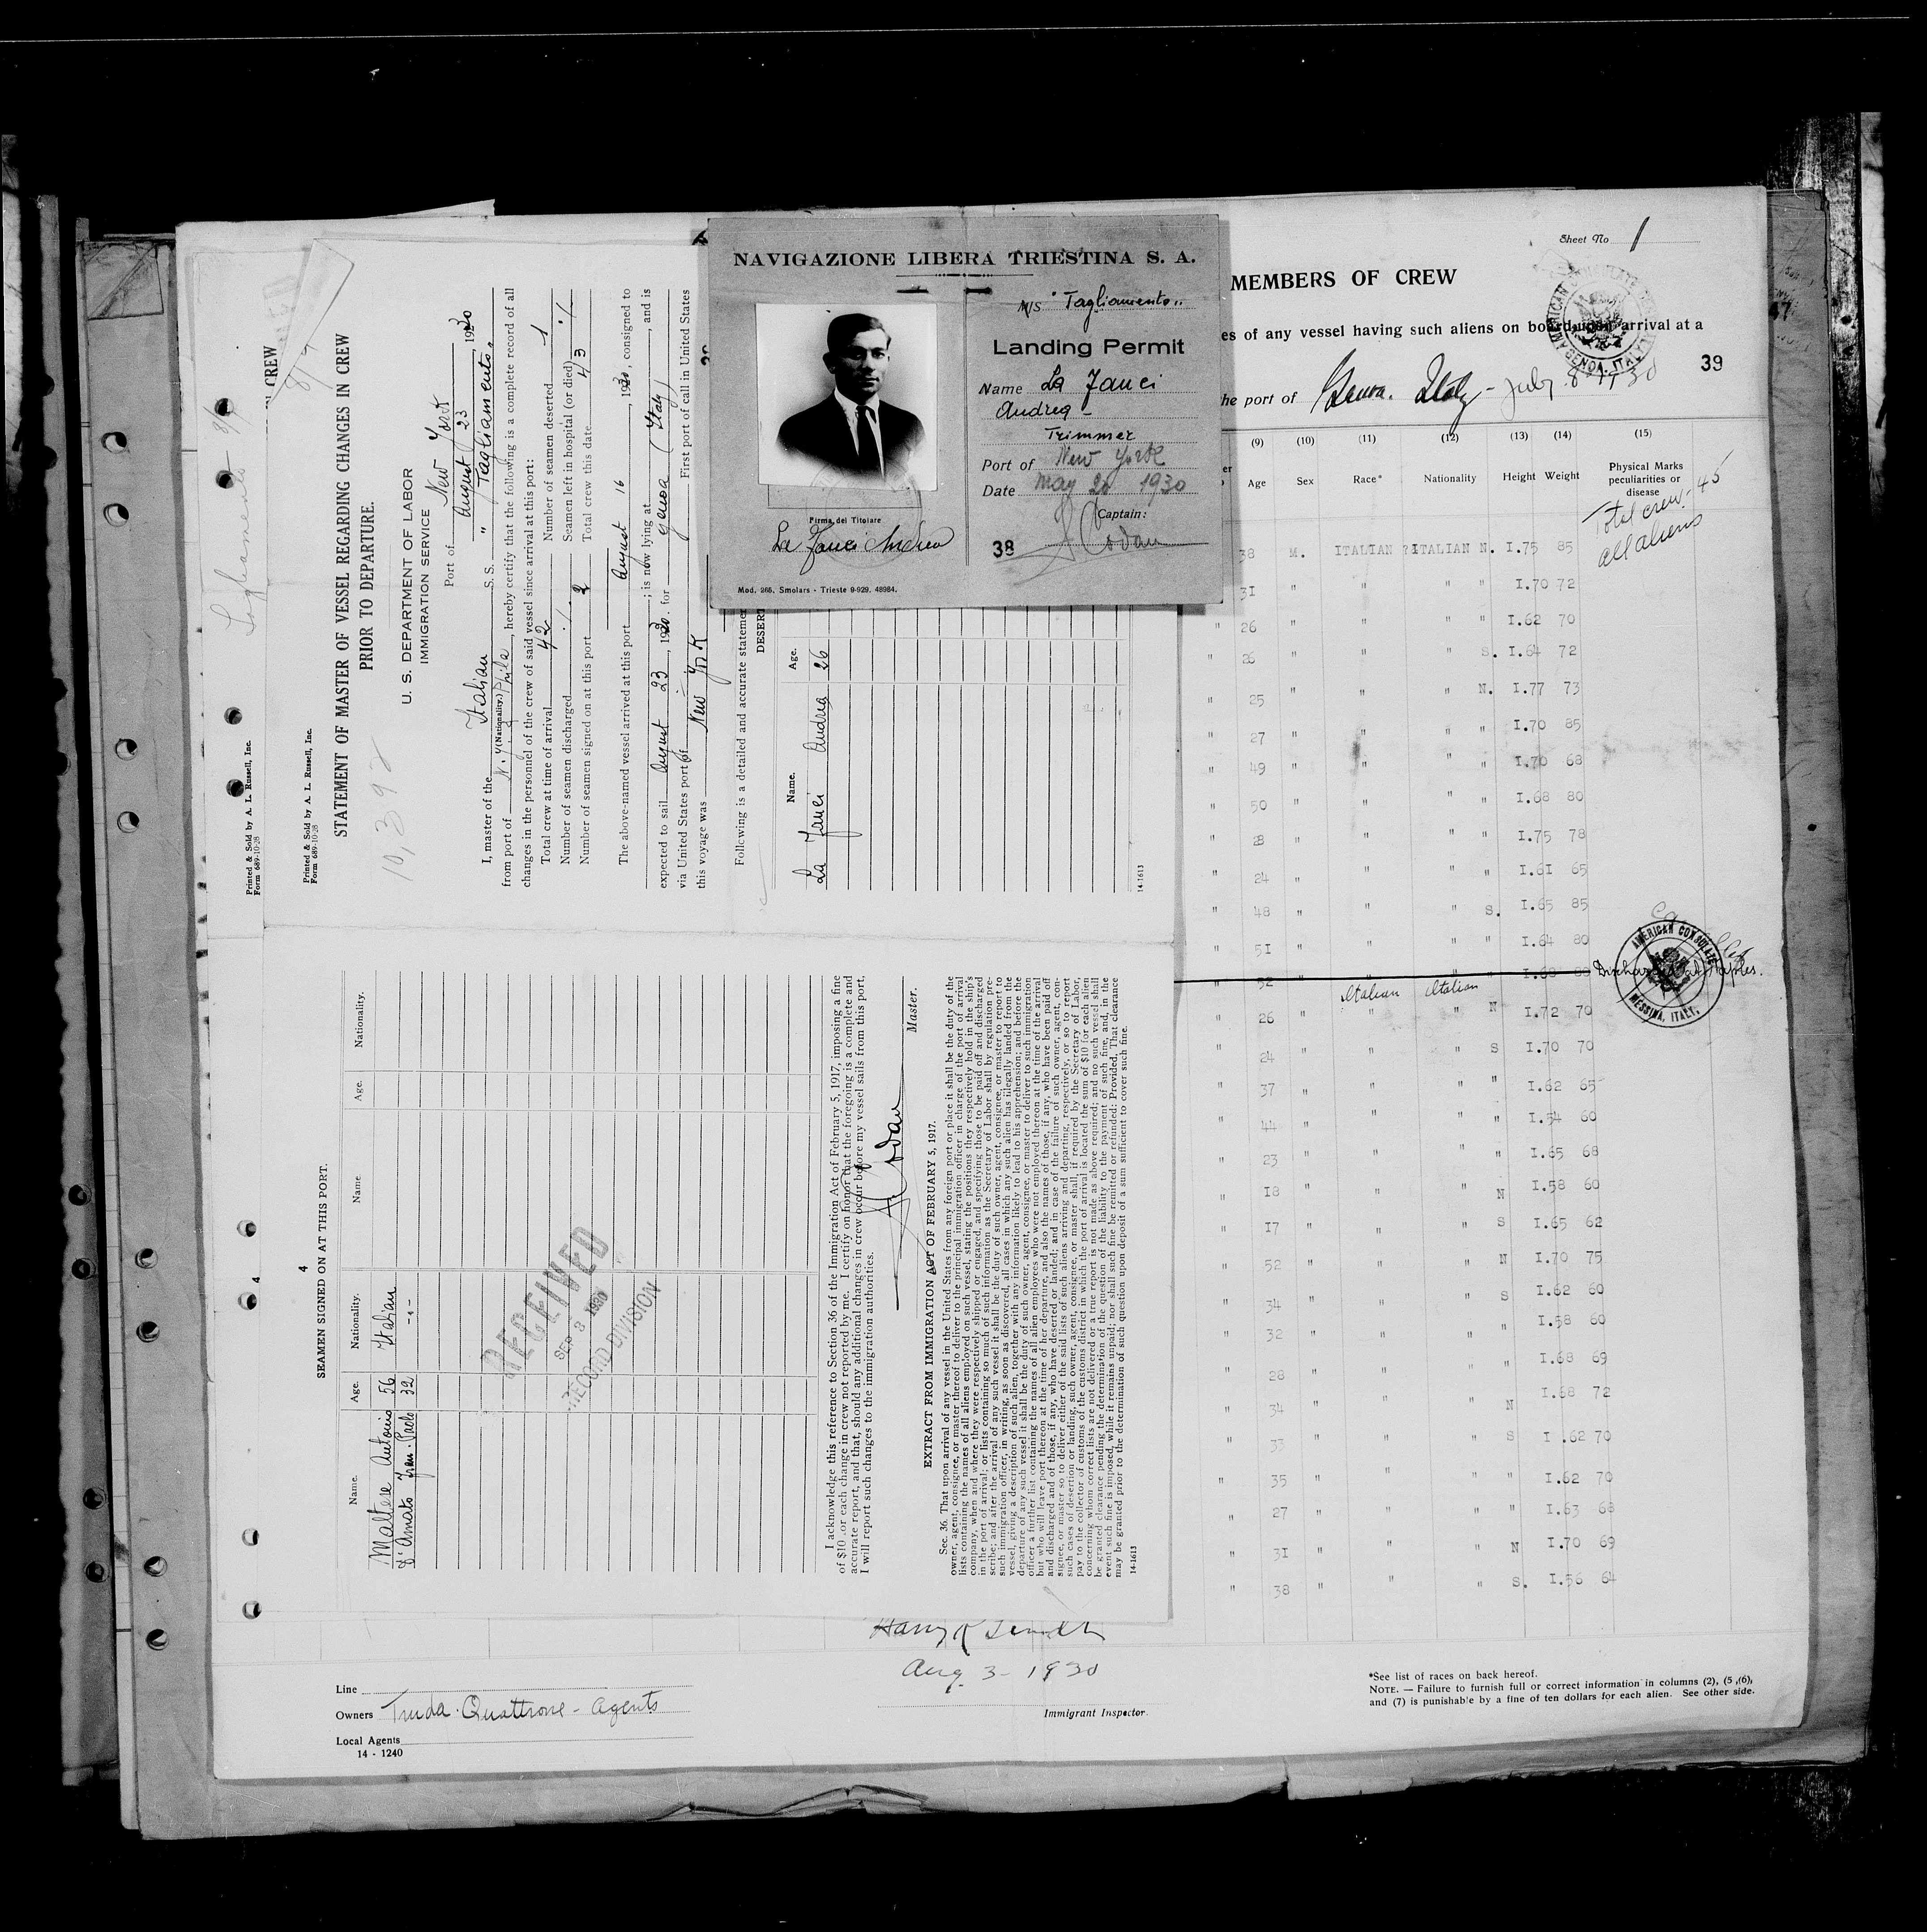 NAVIGAZIONE LIBERA TRIESTINA S. A.
M/S "Tagliamento"
Landing Permit
Name La Fauci
Andrea
Trimmer
Port of New York
Date May 20 1930
Captain:
Firma del Titolare
La Fauci Andrea
38
Mod. 268. Smolars - Trieste 9-929. 48984.
Sheet No 1
MEMBERS OF CREW
es of any vessel having such aliens on board upon arrival at a
39
he port of Genoa. Italy - July 8 1930
AMERICAN CONSULATE GENERAL
GENOA, ITALY
(9) (10) (11) (12) (13) (14) (15)
Age Sex Race* Nationality Height Weight Physical Marks peculiarities or disease
Total crew - 45
all aliens
38 M. ITALIAN ITALIAN N. I.75 85
3I " " " " I.70 72
" 26 " " " " I.62 70
" 26 " " " S. I.64 72
25 " " " N. I.77 73
" 27 " " " " I.70 85
" 49 " " " " I.70 68
" 50 " " " " I.68 80
" 28 " " " " I.75 78
" 24 " " " " I.6I 65
" 48 " " " S. I.65 85
" 5I " " " " I.64 80
" 52 " " " "
Discharged at Naples.
AMERICAN CONSULATE
MESSINA, ITALY.
Italian Italian
" 26 " " N I.72 70
" 24 " " " S I.70 70
" 37 " " " " I.62 65
" 44 " " " " I.54 60
" 23 " " " " I.65 68
" I8 " " " N I.58 60
" I7 " " " S I.65 62
" 52 " " " N I.70 75
" 34 " " " S I.62 60
" 32 " " " " I.58 60
" 28 " " " " I.68 69
" 34 " " " N I.68 72
" 33 " " " S I.62 70
" 35 " " " " I.62 70
" 27 " " " " I.63 68
" 3I " " " N I.70 69
" 38 " " " S. I.56 64
*See list of races on back hereof.
NOTE. — Failure to furnish full or correct information in columns (2), (5,(6),
and (7) is punishable by a fine of ten dollars for each alien. See other side.
Aug 3 - 1930
Immigrant Inspector.
Line
Owners Truda. Quattrone - Agents
Local Agents
14 - 1240
CREW
Printed & Sold by A. L. Russell, Inc.
Form 689-10-28
Printed & Sold by A. L. Russell, Inc.
Form 689-10-28
STATEMENT OF MASTER OF VESSEL REGARDING CHANGES IN CREW
PRIOR TO DEPARTURE.
10,398
U. S. DEPARTMENT OF LABOR
IMMIGRATION SERVICE
Port of New York
August 23, 1930
I, master of the Italian S. S. "Tagliamento"
(Nationality.)
from port of N. Y. Phila, hereby certify that the following is a complete record of all
changes in the personnel of the crew of said vessel since arrival at this port:
Total crew at time of arrival 42 Number of seamen deserted 1
Number of seamen discharged Seamen left in hospital (or died)
Number of seamen signed on at this port 2 Total crew this date 43
The above-named vessel arrived at this port August 16, 1930, consigned to
; is now lying at , and is
expected to sail August 23, 1930. for Genoa (Italy)
via United States port of First port of call in United States
this voyage was New York
Following is a detailed and accurate statemen
DESERT
Name. Age.
La Fauci Andrea 26
14-1613
4
4
SEAMEN SIGNED ON AT THIS PORT.
Name. Age. Nationality. Name. Age. Nationality.
Maltese Antonio 56 Italian
D'Amato Fran. Paolo 32 -"-
RECEIVED
SEP 3 1930
RECORD DIVISION
I acknowledge this reference to Section 36 of the Immigration Act of February 5, 1917, imposing a fine
of $10 for each change in crew not reported by me. I certify on honor that the foregoing is a complete and
accurate report, and that, should any additional changes in crew occur before my vessel sails from this port,
I will report such changes to the immigration authorities.
Master.
EXTRACT FROM IMMIGRATION ACT OF FEBRUARY 5, 1917.
Sec. 36. That upon arrival of any vessel in the United States from any foreign port or place it shall be the duty of the
owner, agent, consignee, or master thereof to deliver to the principal immigration officer in charge of the port of arrival
lists containing the names of all aliens employed on such vessel, stating the positions they respectively hold in the ship's
company, when and where they were respectively shipped or engaged, and specifying those to be paid off and discharged
in the port of arrival; or lists containing so much of such information as the Secretary of Labor shall by regulation pre-
scribe; and after the arrival of any such vessel it shall be the duty of such owner, agent, consignee, or master to report to
such immigration officer, in writing, as soon as discovered, all cases in which any such alien has illegally landed from the
vessel, giving a description of such alien, together with any information likely to lead to his apprehension; and before the
departure of any such vessel it shall be the duty of such owner, agent, consignee, or master to deliver to such immigration
officer a further list containing the names of all alien employees who were not employed thereon at the time of the arrival
but who will leave port thereon at the time of her departure, and also the names of those, if any, who have been paid off
and discharged and of those, if any, who have deserted or landed; and in case of the failure of such owner, agent, con-
signee, or master so to deliver either of the said lists of such aliens arriving and departing, respectively, or so to report
such cases of desertion or landing, such owner, agent, consignee, or master shall, if required by the Secretary of Labor,
pay to the collector of customs of the customs district in which the port of arrival is located the sum of $10 for each alien
concerning whom correct lists are not delivered or a true report is not made as above required; and no such vessel shall
be granted clearance pending the determination of the question of the liability to the payment of such fine, and, in the
event such fine is imposed, while it remains unpaid; nor shall such fine be remitted or refunded: Provided, That clearance
may be granted prior to the determination of such question upon deposit of a sum sufficient to cover such fine.
14-1613